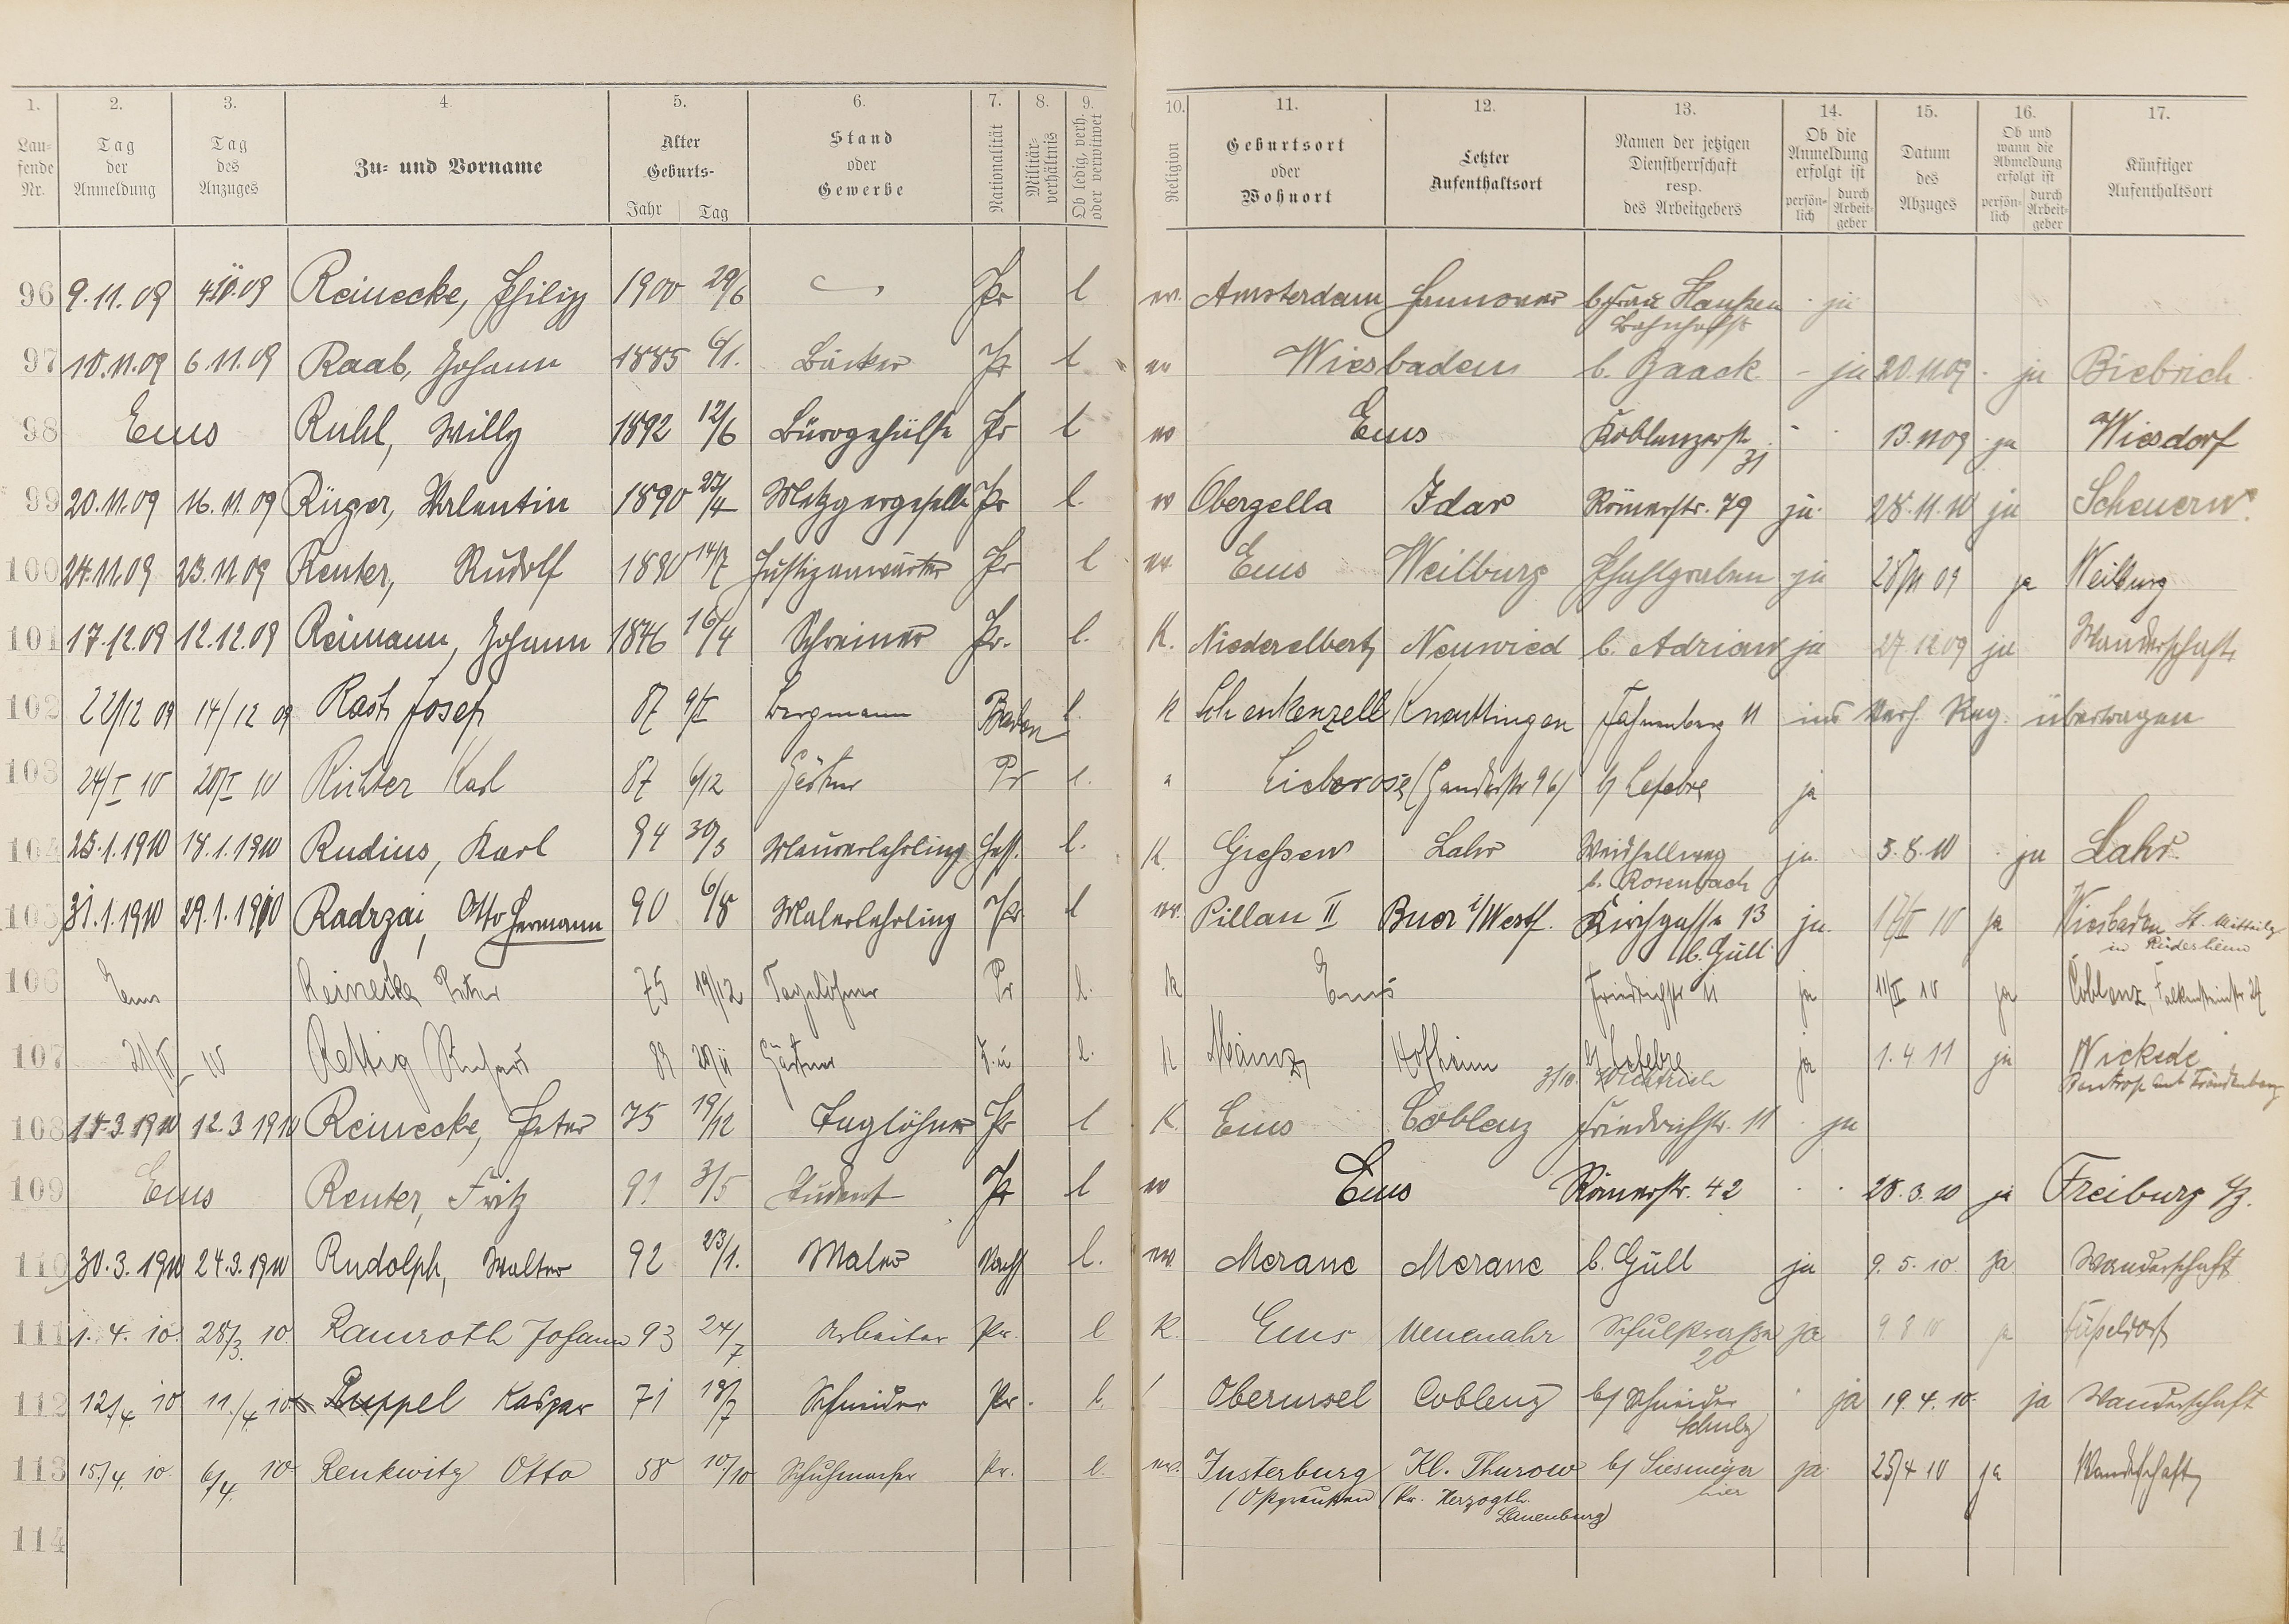 1. 2. 3. 4. 5. 6. 7. 8. 9. 10. 11. 12. 13. 14. 15. 16. 17.
Lau-fende Nr. Tag der Anmeldung Tag des Anzuges Zu- und Vorname Alter Geburts- Jahr Tag Stand oder Gewerbe Nationalität Militär-verhältnis Ob ledig, verh. oder verwitwet Religion Geburtsort oder Wohnort Letzter Aufenthaltsort Namen der jetzigen Dienstherrschaft resp. des Arbeitgebers Ob die Anmeldung erfolgt ist persön-lich durch Arbeit-geber Datum des Abzuges Ob und wann die Abmeldung erfolgt ist persön-lich durch Arbeit-geber Künftiger Aufenthaltsort
96 9.11.09 Reinecke, Philipp 1900 29/6 Pr l ev. Amsterdam Hannover b. Frau ja
97 10.11.09 6.11.09 Raab, Johann 1885 6/1. Bäcker Pr l ev Wiesbaden b. Baack - ja 20.11.09 ja Biebrich
98 Ems Ruhl, Willy 1892 12/6 Bürogehülfe Pr l ev Ems Koblenzerstr. 31 13.11.09 ja Wiesdorf
99 20.11.09 16.11.09 Rüger, Valentin 1890 27/4 Metzgergeselle Pr l. ev Oberzella Idar Römerstr. 79 ja 28.11.10 ja Scheuern
100 24.11.09 23.11.09 Reuter, Rudolf 1890 14/7 Justizanwärter Pr l ev. Ems Weilburg Pfahlgraben ja 28/11 09 ja Weilburg
101 17.12.09 12.12.09 Reimann, Johann 1876 16/4 Schreiner Pr. l. K. Niederelbert Neuwied b. Adrian ja 27.12.09 ja Wanderschaft
102 22/12 09 14/12 09 Rast Josef 87 9/I Bergmann Baden l. K Schenkenzell Kneuttingen Fahnenberg 11 ins Verh. Reg. übertragen
103 24/I 10 20/I 10 Richter Karl 87 6/12 Gärtner Pr l. " Lieberose b/ Lefebre ja
104 25.1.1910 18.1.1910 Rudius, Karl 94 30/5 Maurerlehrling Hess. l. K. Giessen Lahr Weidhellweg ja. 5.8.10 ja Lahr.
b. Rosenbach
105 31.1.1910 29.1.1910 Radrzai, Otto Hermann 90 6/8 Malerlehrling Pr l ev. Pillau II Buer i/Westf. Kirchgasse 13 ja. 17/II 10 ja Wiesbaden
b. Güll in Rüdesheim
106 Ems Reinecke Peter 75 19/12 Tagelöhner Pr l. K Ems Friedrichstr 11 ja 11/II 10 ja Coblenz,
107 21/II 10 Rettig Richard 89 Gärtner l. K Mainz Hofheim b/ Lefebre ja 1.4.11 ja Wickede
108 12.3.1910 Reinecke, Peter 75 19/12 Taglöhner Pr l K. Ems Coblenz Friedrichstr. 11 ja
109 Ems Reuter, Fritz 91 3/5 Student Pr l ev Ems Römerstr. 42 28.3.10 ja Freiburg
110 30.3.1910 24.3.1910 Rudolph, Walter 92 23/1. Maler l. ev. Merane Merane b. Güll ja 9.5.10 ja Wanderschaft
111 1. 4. 10. 28/3. 10. Ramroth Johann 93 24/7 Arbeiter Pr. l K. Ems Neuenahr Schulstrasse 20 ja 9.8.10 ja Düsseldorf
112 12./4. 10 11./4. 10 Ruppel Kaspar 71 18/7 Schneider Pr. l. Oberursel Coblenz b/ Schneider Schulz ja 19.4.10. ja Wanderschaft
113 15./4. 10. 6/4. 10 Renkwitz Otto 58 10/10 Schuhmacher Pr. l. ev. Insterburg Kl. Thurow b/ Siesmeyer ja. 25/4 10 ja Wanderschaft
(Ostpreussen) (Kr. Herzogth. Lauenburg) hier
114